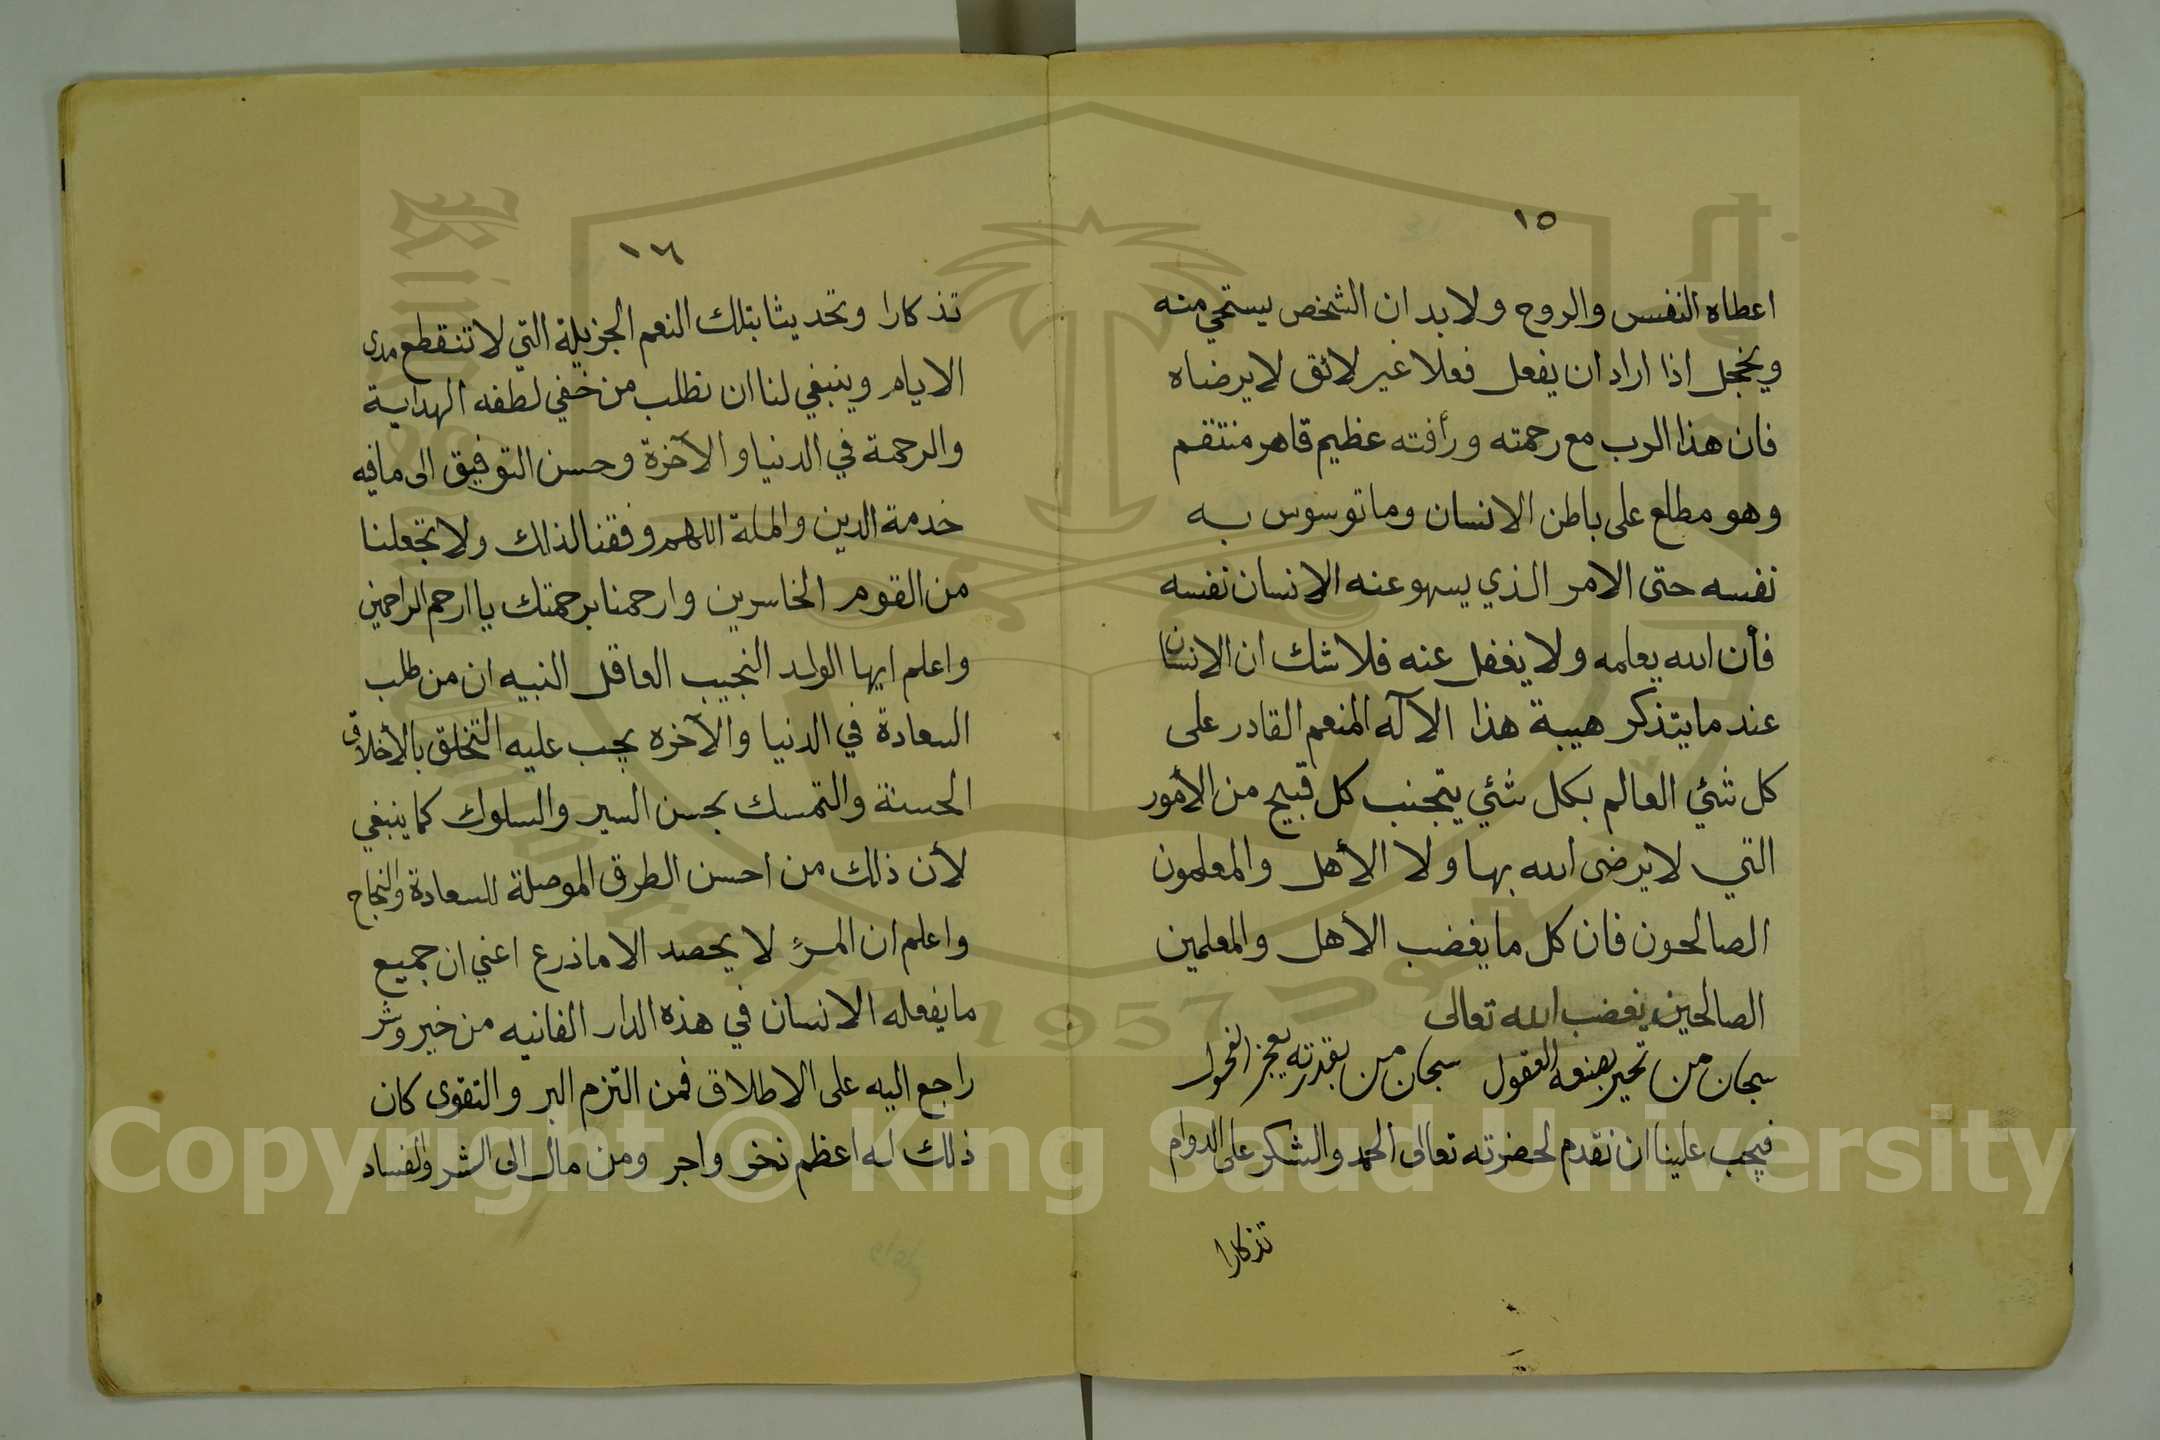 ١٥
اعطاه النفس والروح ولابد ان الشخص يستحي منه
ويخجل اذا اراد ان يفعل فعلا غير لائق لا يرضاه
فان هذا الرب مع رحمته ورأفته عظيم قاهر منتقم
وهو مطلع على باطن الانسان وما توسوس به
نفسه حتى الامر الذي يسهو عنه الانسان نفسه
فأن الله يعلمه ولا يغفل عنه فلا شك ان الانسان
عند ما يتذكر هيبة هذا الآله المنعم القادر على
كل شئي العالم بكل شئي يتجنب كل قبيح من الأمور
التي لا يرضى الله بها ولا الأهل والمعلمون
الصالحون فان كل ما يغضب الأهل والمعلمين
الصالحين يغضب الله تعالى
سبحان من تحير بصنعه العقول سبحان من بقدرته يعجز الفحول
فيجب علينا ان نقدم لحضرته تعالى الحمد والشكر على الدوام
تذكارا
١٦
تذكارا وتحديثا بتلك النعم الجزيلة التي لا تنقطع مدى
الايام وينبغي لنا ان نطلب من خفي لطفه الهداية
والرحمة في الدنيا والآخرة وحسن التوفيق الى ما فيه
خدمة الدين والملة اللهم وفقنا لذلك ولا تجعلنا
من القوم الخاسرين وارحمنا برحمتك يا ارحم الراحمين
واعلم ايها الولد النجيب العاقل النبيه ان من طلب
السعادة في الدنيا والآخره يجب عليه التخلق بالأخلاق
الحسنة والتمسك بحسن السير والسلوك كما ينبغي
لأن ذلك من احسن الطرق الموصلة للسعادة والنجاح
واعلم ان المرء لا يحصد الا ما ذرع اعني ان جميع
ما يفعله الانسان في هذه الدار الفانيه من خير وشر
راجع اليه على الاطلاق فمن التزم البر والتقوى كان
ذلك له اعظم نخر واجر ومن مال الى الشر والفساد
Copyright © King Saud University
King Saud University
1957